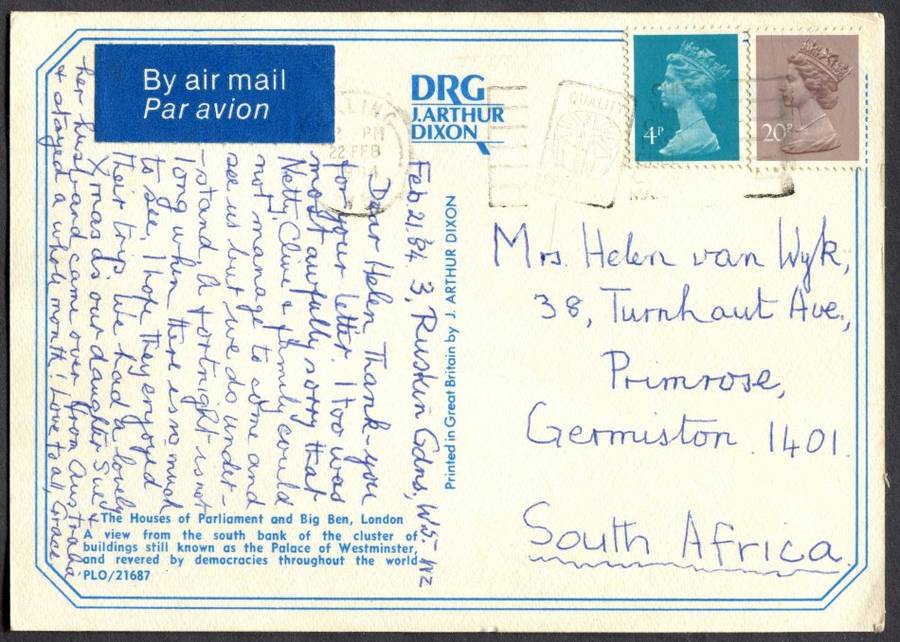 By air mail
Par avion
DRG
J. ARTHUR
DIXON
4P
20P
QUALITY
PM
22 FEB
Feb. 21. 84. 3, Ruskin Gdns, W5-
Dear Helen Thank-you
for your letter. I too was
most awfully sorry that
Netty, Clive & family could
not manage to come and
see us but we do under-
-stand. A fortnight is not
long when there is so much
to see. I hope they enjoyed
their trip. We had a lovely
Xmas as our daughter Sue &
her husband came over from Australia
& stayed a whole month! Love to all, Grace
Printed in Great Britain by J. ARTHUR DIXON
Mrs. Helen van Wyk,
38, Turnhout Ave.,
Primrose,
Germiston. 1401.
South Africa
The Houses of Parliament and Big Ben, London
A view from the south bank of the cluster of
buildings still known as the Palace of Westminster,
and revered by democracies throughout the world
PLO/21687